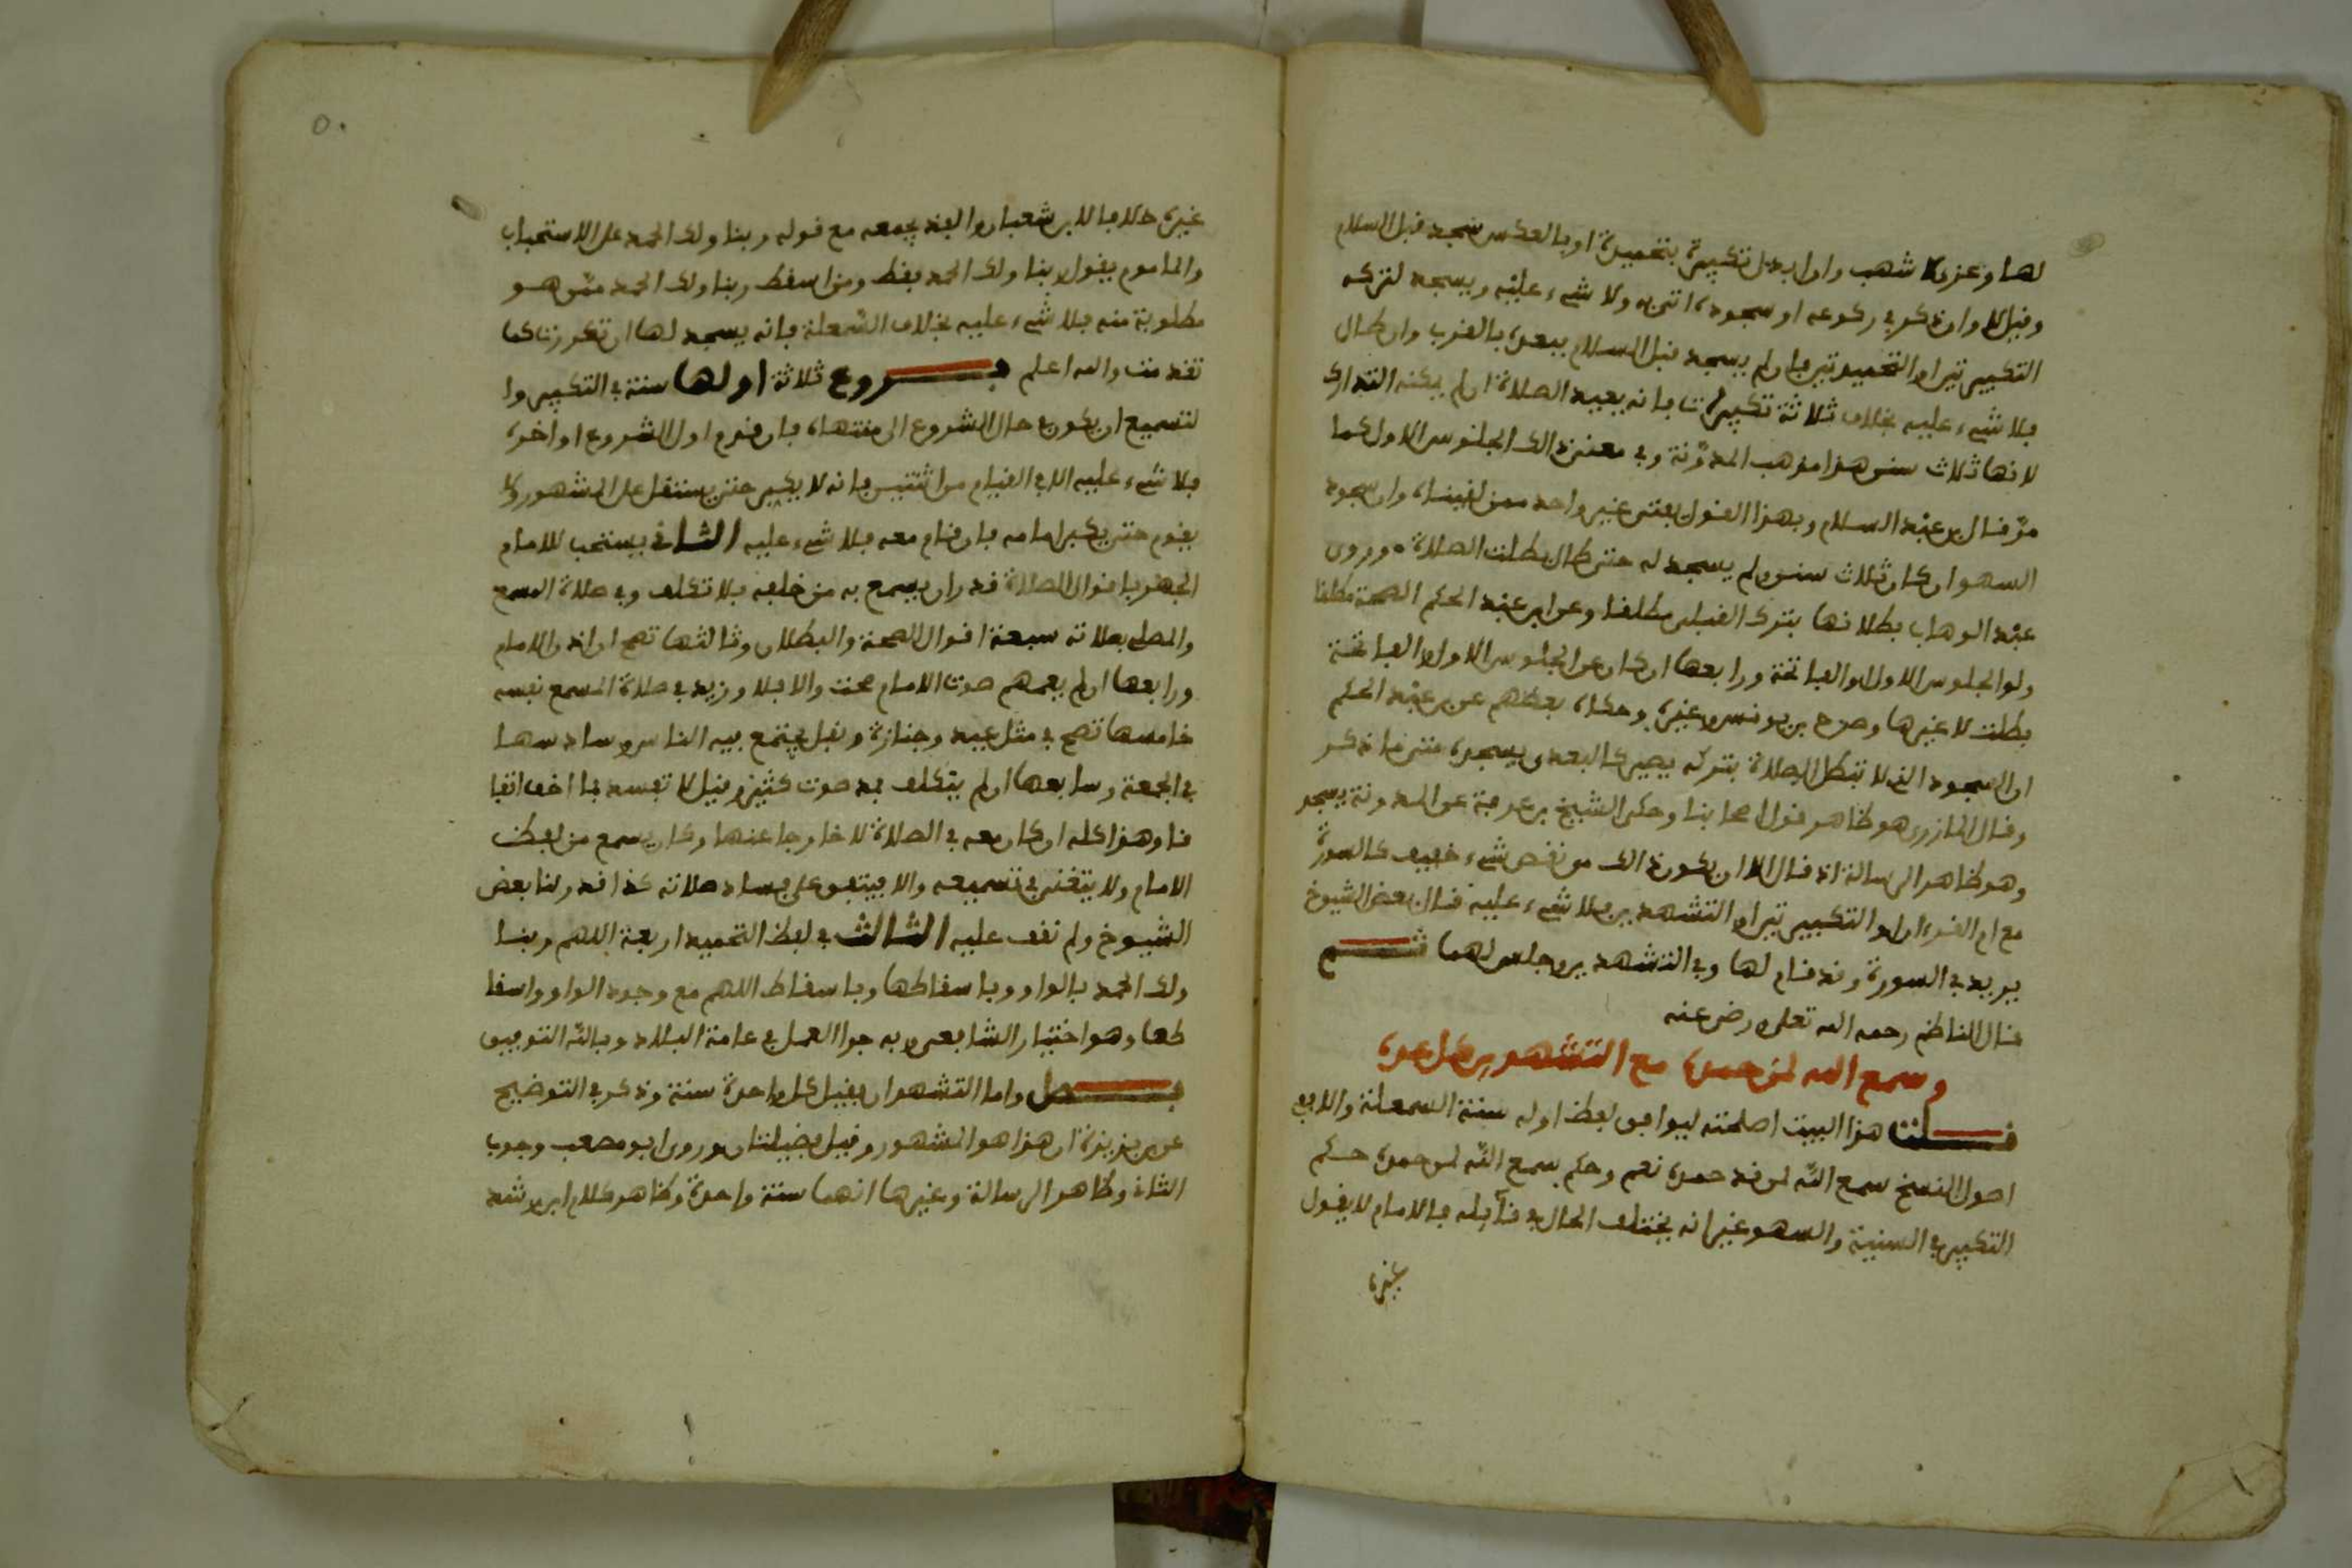 لها وعزي لاشهب وان ابدل تكبيرة بتحميدة او بالعكس سجد قبل السلام
وقيل لا وان ذكر في ركوعه او سجوده اتى به ولا شيء عليه ويسجد لتركه
التكبيرتين او التحميدتين فان لم يسجد قبل السلام فبعده بالقرب وان طال
فلا شيء عليه بخلاف ثلاثة تكبيرات فانه يعيد الصلاة ان لم يمكنه التدارك
لانها ثلاث سنن هذا مذهب المدونة وفي معنى ذالك الجلوس الاول كما
مر قال بن عبد السلام وبهذا القول يفتى غير واحد ممن لقيناه وان سجود
السهو ان كان ثلاث سنن ولم يسجد له حتى طال بطلت الصلاة وروى
عبد الوهاب بطلانها بترك القبلي مطلقا وعن ابن عبد الحكم الصحة مطلقا
ولو الجلوس الاول او الفاتحة ورابعها ان كان عن الجلوس الاول او الفاتحة
بطلت لا غيرها وصرح بن يونس وغيره وحكاه بعضهم عن بن عبد الحكم
ان السجود الذي لا تبطل الصلاة بتركه يصير كالبعدي يسجده متى ما ذكر
وقال المازري هو ظاهر قول اصحابنا وحكى الشيخ بن عرفة عن المدونة يسجد
وهو ظاهر الرسالة اذ قال الا ان يكون ذالك من نقص شيء خفيف كالسورة
مع ام القرءان او التكبيرتين او التشهدين فلا شيء عليه قال بعض الشيوخ
يريد في السورة وقد قام لها وفي التشهدين وجلس لهما ثم
قال الناظم رحمه الله تعلى ورضي عنه
وسمع الله لمن حمده مع التشهدين كل عده
قلت هذا البيت اصلحته ليوافق لفظ اوله سنة السمعلة والا ففي
اصول النسخ سمع الله لمن قد حمده نعم وحكم سمع الله لمن حمده حكم
التكبير في السنية والسهو غير انه يختلف الحال في قآئله فالامام لا يقول
غيره
٥٠
غيره خلافا لابن شعبان والفذ يجمعه مع قوله ربنا ولك الحمد على الاستحباب
والماموم يقول ربنا ولك الحمد فقط ومن اسقط ربنا ولك الحمد ممن هو
مطلوبة منه فلا شيء عليه بخلاف السمعلة فانه يسجد لها ان تكررت كما
تقدمت والله اعلم فروع ثلاثة اولها سنة في التكبير وا
لتسميع ان يكون في حال الشروع الى منتهاه فان قدم اول الشروع او اخره
فلا شيء عليه الا في القيام من اثنتين فانه لا يكبر حتى يستقل على المشهور ولا
يقوم حتى يكبر امامه فان قام معه فلا شيء عليه الثاني يستحب للامام
الجهر باقوال الصلاة قدر ان يسمع به من خلفه بلا تكلف وفي صلاة المسمع
والمصلي بصلاته سبعة اقوال الصحة والبطلان وثالثها تصح ان اذن الامام
ورابعها ان لم يعمهم صوت الامام صحت والا فلا وزيد في صلاة المسمع نفسه
خامسها تصح في مثل عيد وجنازة ونفل يجتمع فيه الناس وسادسها
في الجمعة وسابعها ان لم يتكلف بمد صوت كثير وقيل لا تفسد بما اخف اتفا
قا وهذا كله ان كان معه في الصلاة لا خارجا عنها وكان يسمع من لفظ
الامام ولا يتغنى في تسميعه والا فيتفق على فساد صلاته كذا قد رلنا بعض
الشيوخ ولم نقف عليه الثالث في لفظ التحميد اربعة اللهم ربنا
ولك الحمد بالواو وباسقاطها وباسقاط اللهم مع وجود الواو واسقا
طها وهو اختيار الشافعي وبه جرا العمل في عامة البلاد وبالله التوفيق
فصل واما التشهدان فقيل كل واحدة سنة وذكر في التوضيح
عن بن بزيزة ان هذا هو المشهور وقيل فضيلتان وروى ابو مصعب وجوب
الثاني وظاهر الرسالة وغيرها انهما سنة واحدة وظاهر كلام ابن رشد